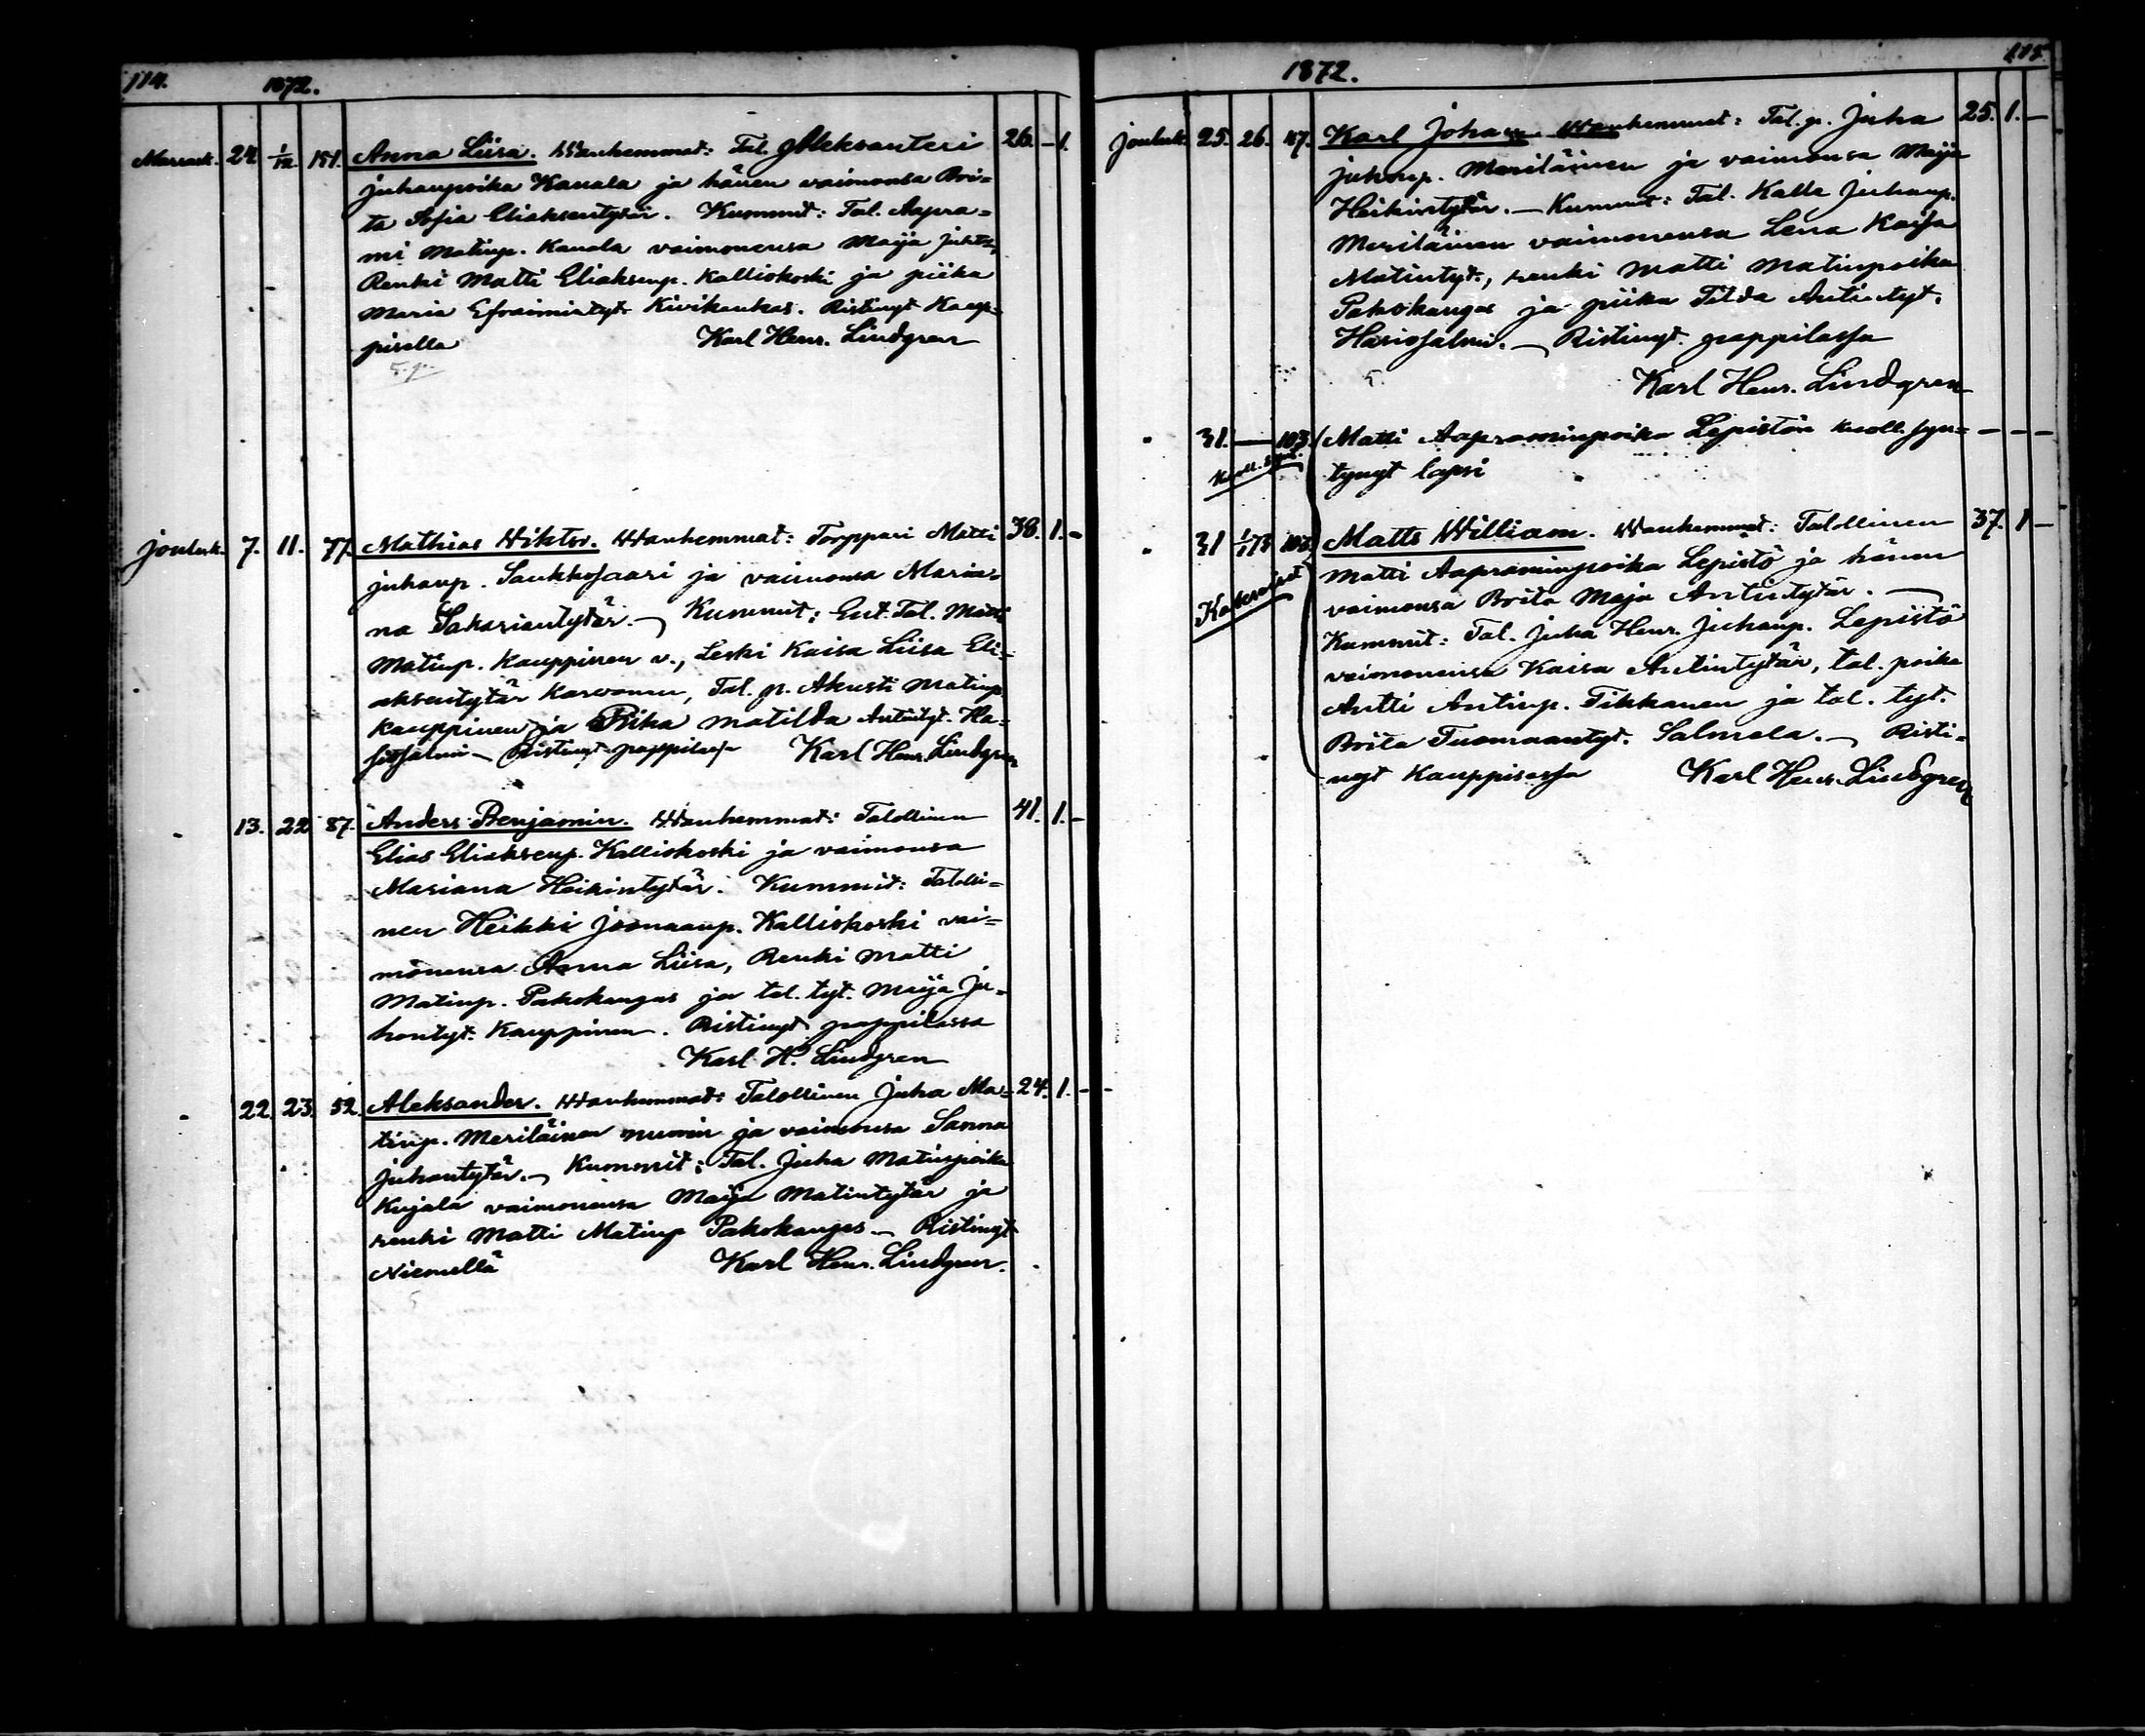 114. 1872.
Marrask. 24. 1/12. 151. Anna Liisa. Wanhemmat: Tal. Aleksanteri 26. – 1.
Juhanpoika Kauala ja hänen vaimonsa Bri=
ta Sofia Eliaksentytär. Kummit: Tal. Aapra=
mi Matinp. Kauala vaimonensa Maija
Renki Matti Eliaksenp. Kalliokoski ja piika
Maria Efraimintyt. Kivikankas. Ristinyt Kaup=
pisella Karl Henr. Lindgren
Jouluk. 7. 11. 77. Mathias Wiktor. Wanhemmat: Torppari Matti 38. 1. –
Juhanp. Saukkosaari ja vaimonsa Maria=
na Sakariantytär. – Kummit: Ent. Tal. Matti
Matinp. Kauppinen v., Leski Kaisa Liisa Eli=
aksentytär Karvonen, Tal. p. Akusti Matinp.
Kauppinen ja Piika Matilda Antintyt. Ha=
 – Ristinyt pappilassa Karl Henr. Lindgren
13. 22. 87. Anders Benjamin. Wanhemmat: Talollinen 41. 1. –
Elias Eliaksenp. Kalliokoski ja vaimonsa
Mariana Heikintytär. Kummit: Talolli=
nen Heikki Joonaanp. Kalliokoski vai=
monensa Anna Liisa, Renki Matti
Matinp. Pakokangas ja tal. tyt. Maija Ju=
hontyt. Kauppinen. Ristinyt pappilassa
Karl H. Lindgren
22. 23. 52. Aleksander. Wanhemmat: Talollinen Juha Ma= 24. 1. –
tinp. Meriläinen ja vaimonsa Sanna
Juhantytär. – Kummit: Tal. Juha Matinpoika
Kujala vaimonensa Maija Matintytär ja
renki Matti Matinp Pakokangas – Ristinyt
Niemellä Karl Henr. Lindgren.
1872. 115.
Jouluk. 25. 26. 47. Karl Johan Wanhemmat: Tal. p. Juha 25. 1. –
Juhanp. Meriläinen ja vaimonsa Maija
Heikintytär. – Kummit: Tal. Kalle Juhanp.
Meriläinen vaimonensa Lena Kaisa
Matintyt., renki Matti Matinpoika
Pakokangas ja piika Tilda Antintyt.
 – Ristinyt pappilassa
Karl Henr. Lindgren
31. — 103. Matti Aapraminpoika Lepistön kuoll. syn= – – –
Kuoll. synt. tynyt lapsi
31 1/1 73 103. Matts William. Wanhemmat: Talollinen 37. 1 –
Kaksoiset Matti Aapraminpoika Lepistö ja hänen
vaimonsa Brita Maja Antintytär. –
Kummit: Tal. Juha Henr. Juhanp. Lepistö
vaimonensa Kaisa Antintytär, tal. poika
Antti Antinp. Tikkanen ja tal. tyt.
Brita Tuomaantyt. Salmela. – Risti=
nyt Kauppisessa Karl Henr. Lindgren